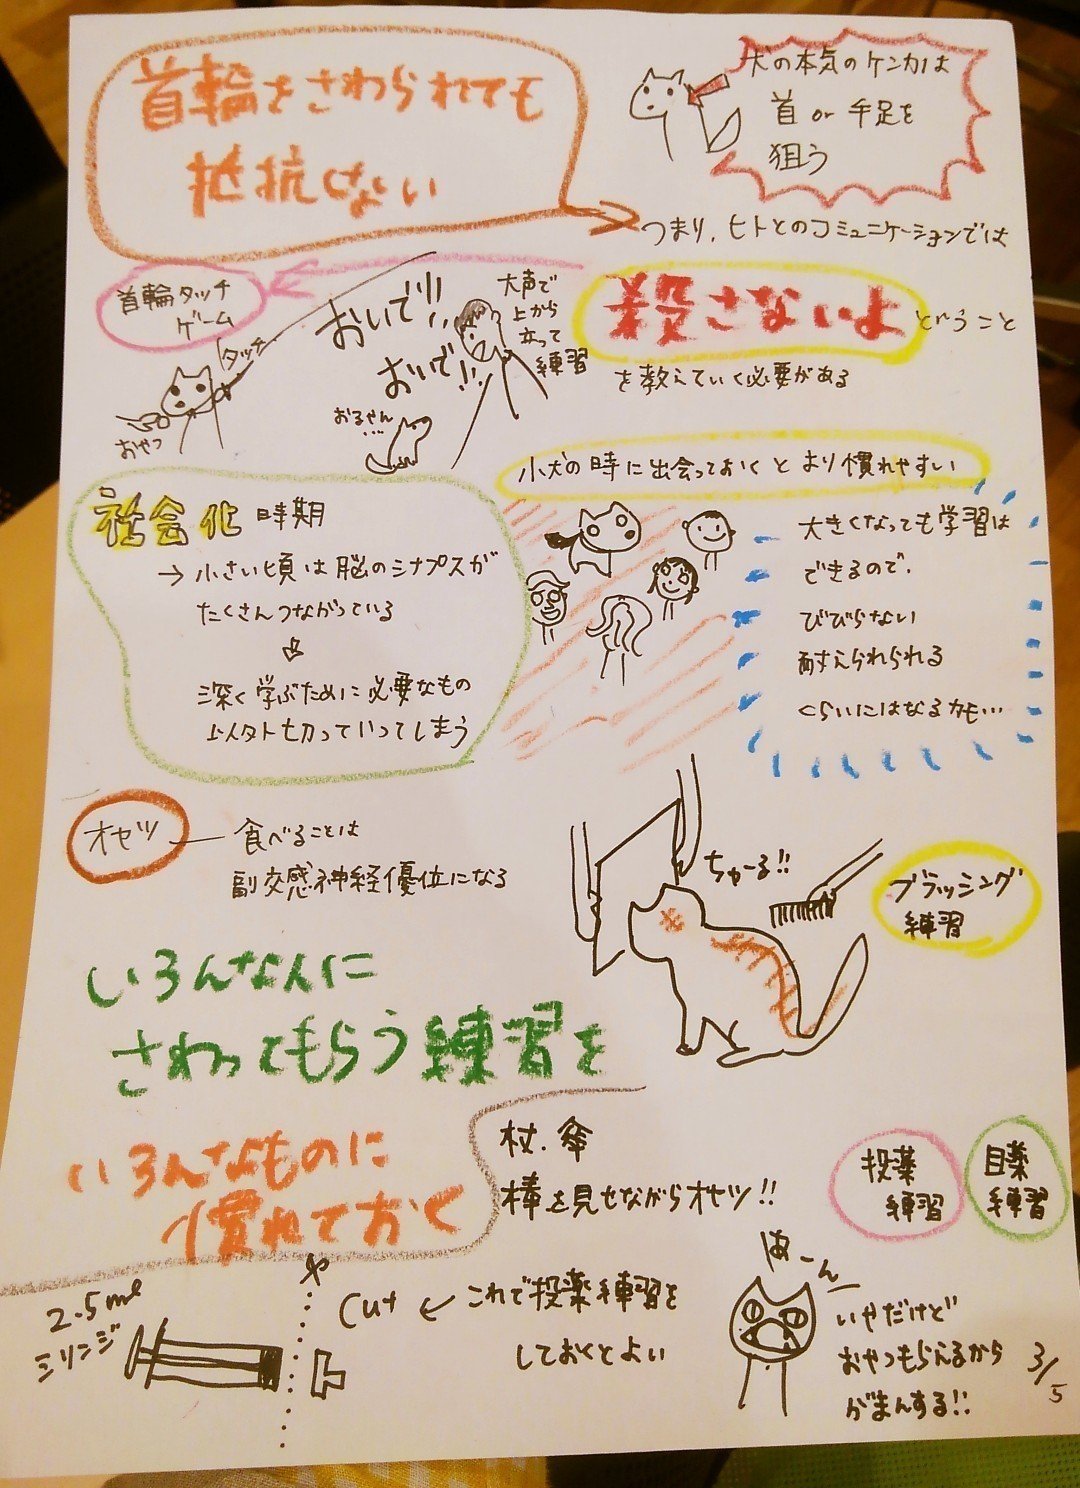 首輪をさわられても
抵抗しない
犬の本気のケンカは
首 or 手足を
狙う
つまり、ヒトとのコミュニケーションでは
殺さないよ ということ
を教えていく必要がある
首輪タッチ
ゲーム
タッチ
おやつ
おいで!!
おいで!!
大声で
上から
立って
練習
おるやん
…
小犬の時に出会っておくとより慣れやすい
社会化 時期
→ 小さい頃は脳のシナプスが
たくさんつながっている
深く学ぶために必要なもの
以外切っていってしまう
大きくなっても学習は
できるので、
びびらない
耐えられられる
くらいにはなるかも…
オヤツ
食べることは
副交感神経優位になる
ちゅーる!!
ブラッシング
練習
いろんな人に
さわってもらう練習を
いろんなものに
慣れておく
杖、傘
棒を見せながらオヤツ!!
投薬
練習
目薬
練習
2.5ml
シリンジ
Cut ← これで投薬練習を
しておくとよい
あーん
いやだけど
おやつもらえるから
がまんする!!
3/5